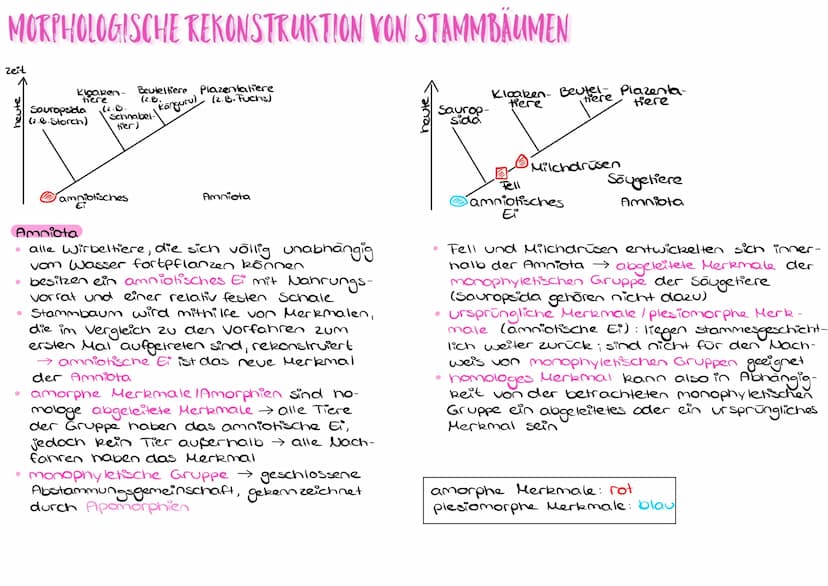 MORPHOLOGISCHE REKONSTRUKTION VON STAMMBÄUMEN
zeit
heute
Sauropsida
(z.B. Storch)
Kloaken-
tiere
(z.B.
Schnabel-
tier)
Beuteltiere
(z.B.
Känguru)
Plazentatiere
(z.B. Fuchs)
amniotisches
Ei
Amniota
Amniota
• alle Wirbeltiere, die sich völlig unabhängig
vom Wasser fortpflanzen können
• besitzen ein amniotisches Ei mit Nahrungs-
vorrat und einer relativ festen Schale
• Stammbaum wird mithilfe von Merkmalen,
die im Vergleich zu den Vorfahren zum
ersten Mal aufgetreten sind, rekonstruiert
→ amniotische Ei ist das neue Merkmal
der Amniota
• amorphe Merkmale/Amorphien sind ho-
mologe abgeleitete Merkmale → alle Tiere
der Gruppe haben das amniotische Ei,
jedoch kein Tier außerhalb → alle Nach-
fahren haben das Merkmal
• monophyletische Gruppe → geschlossene
Abstammungsgemeinschaft, gekennzeichnet
durch Apomorphien
heute
Saurop-
sida
Kloaken-
tiere
Beutel-
tiere
Plazenta-
tiere
Milchdrüsen
Fell
Säugetiere
amniotisches
Ei
Amniota
• Fell und Milchdrüsen entwickelten sich inner-
halb der Amniota → abgeleitete Merkmale der
monophyletischen Gruppe der Säugetiere
(Sauropsida gehören nicht dazu)
• ursprüngliche Merkmale/plesiomorphe Merk-
male (amniotische Ei): liegen stammesgeschicht-
lich weiter zurück; sind nicht für den Nach-
weis von monophyletischen Gruppen geeignet
• homologes Merkmal kann also in Abhängig-
keit von der betrachteten monophyletischen
Gruppe ein abgeleitetes oder ein ursprüngliches
Merkmal sein
amorphe Merkmale: rot
plesiomorphe Merkmale: blau